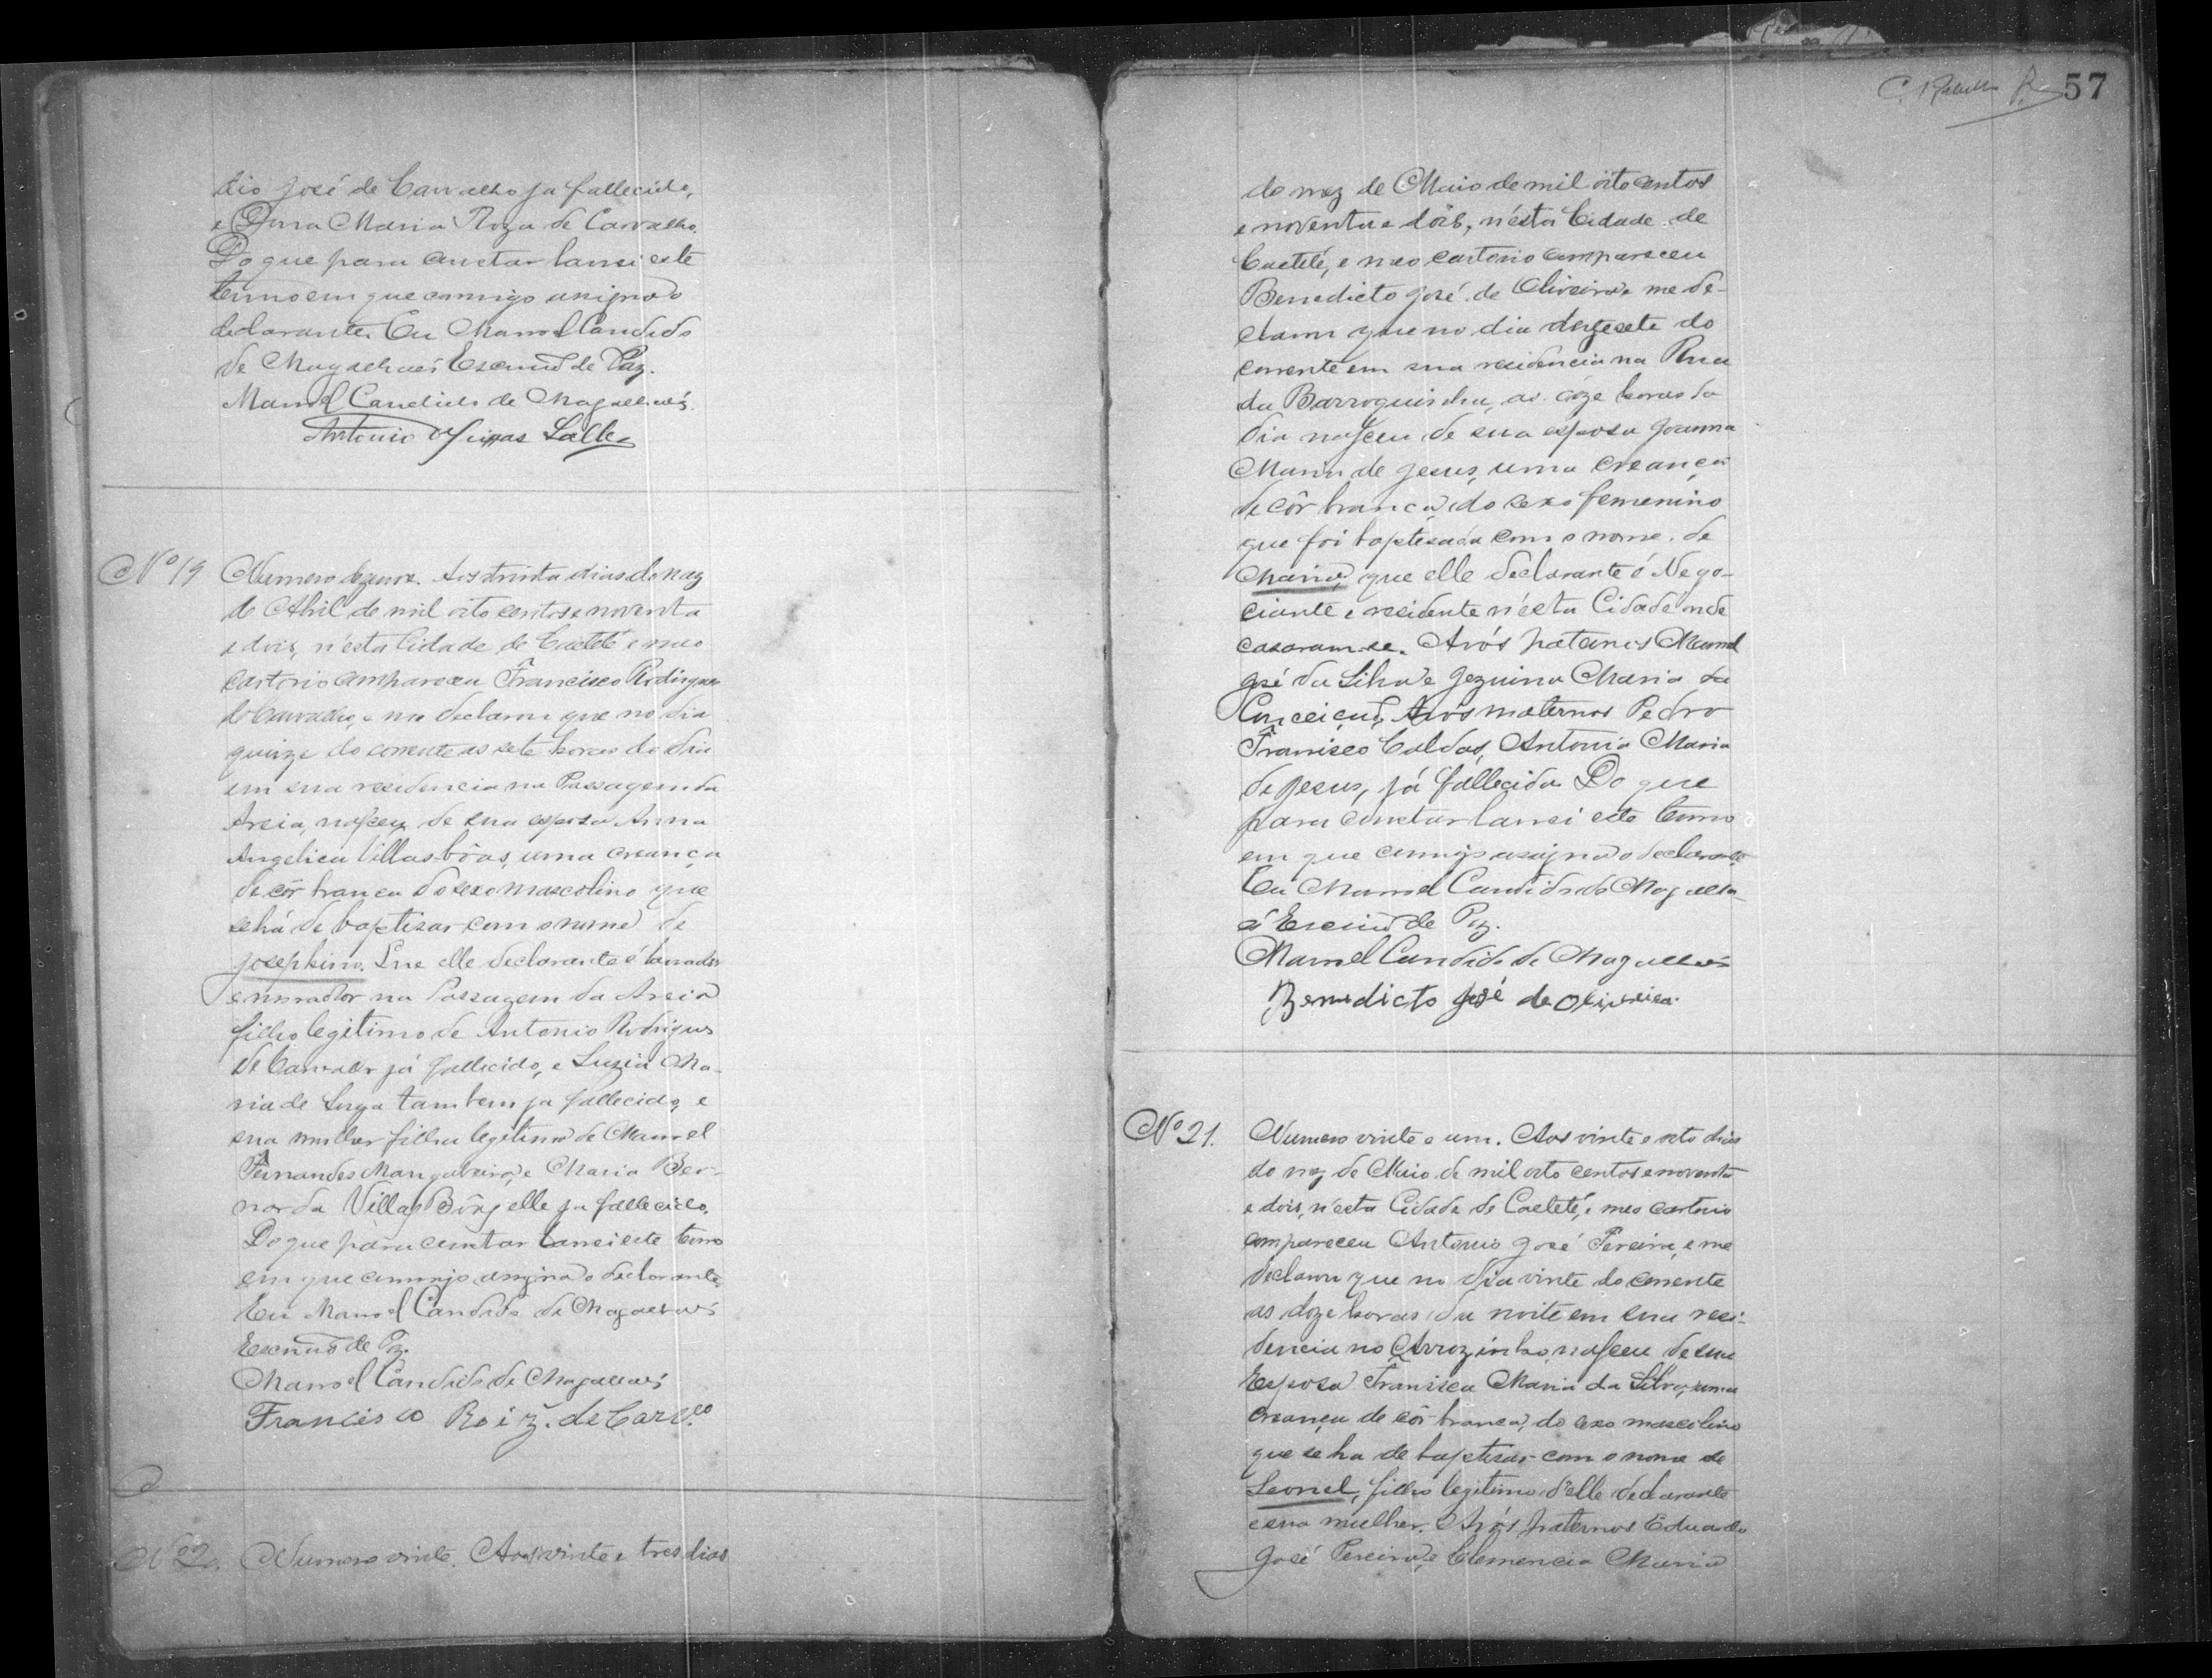 dio José de Carvalho ja fallecido,
e Dona Maria Roza de Carvalho.
Do que para constar lansei este
termo em que commigo assigna o
declarante. Eu Manoel Candido
de Magalhaes Escrivão de Paz.
Manoel Candido de Magalhaes.
Antonio Salles
Nº 19 Numero dezenove. Aos trinta dias do mez
de Abril de mil oito centos e noventa
e dois, n'esta Cidade de Caeteté e meo
cartorio compareceu Francisco Rodrigues
de Carvalho, e me declarou que no dia
quinze do corrente as sete horas do dia
em sua residencia na Passagem da
Areia, nasceu de sua esposa Anna
Angelica Villas-bôas, uma creança
de côr branca do sexo mascolino que
se há de baptisar com o nome de
Josephino. Que elle declarante é lavrador
e morador na Passagem da Areia
filho legitimo de Antonio Rodrigues
de Carvalho já fallecido, e Luzia Ma-
ria de tambem ja fallecida, e
sua mulher filha legitima de Manoel
Fernandes Mangabeira, e Maria Ber-
narda Villas Bôas, elle ja fallecido.
Do que para constar lansei este termo
em que commigo assigna o declarante.
Eu Manoel Candido de Magalhaes
Escrivão de Paz.
Manoel Candido de Magalhaes
Francisco Roiz. de Carv.co
Nº 20. Numero vinte. Aos vinte e tres dias
57
do mez de Maio de mil oito centos
e noventa e dois, n'esta Cidade de
Caeteté, e meo cartorio compareceu
Benedicto José de Oliveira e me de-
clarou que no dia dezesete do
corrente em sua residencia na Rua
da Barroquinha, as doze horas do
dia nasceu de sua esposa Joanna
Maria de Jesus, uma creança
de côr branca, do sexo femenino
que foi baptisada com o nome de
Maria, que elle declarante é Nego-
ciante e residente n'esta Cidade onde
casaram-se. Avós paternos Manoel
José da Silva e Jezuina Maria da
Conceição, Avós maternos Pedro
Francisco Caldas, Antonia Maria
de Jesus, já fallecida Do que
para constar lansei este termo
em que commigo assigna o declarante
Eu Manoel Candido de Magalha-
es Escrivão de Paz.
Manoel Candido de Magalhaes
Benedicto José de Oliveira.
Nº 21. Numero vinte e um. Aos vinte e sete dias
do mez de Maio de mil oito centos e noventa
e dois, n'esta Cidade de Caeteté, e meo cartorio
compareceu Antonio José Pereira, e me
declarou que no dia vinte do corrente
as doze horas da noite em sua resi-
dencia no Arrozinho, nasceu de sua
Esposa Francisca Maria da Silva, uma
creança de côr branca, do sexo mascolino
que se ha de baptisar com o nome de
Leonel, filho legitimo d'elle declarante
e sua mulher. Avós paternos Eduardo
José Pereira, e Clemencia Maria